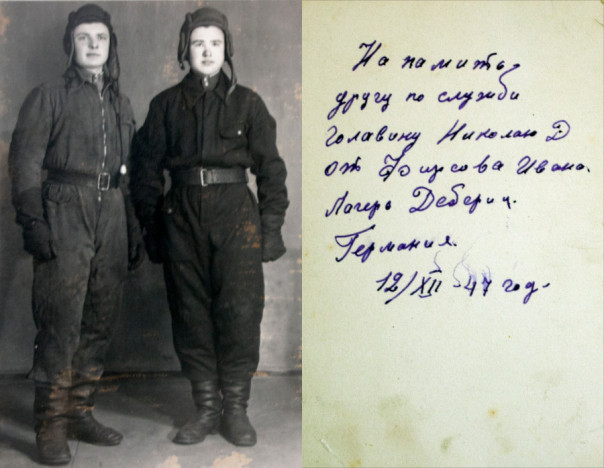 На памить
другу по служби
Головину Николаю Д
от Фирсова Ивана.
Лагерь Дебериц.
Германия.
12/XII-47 год.